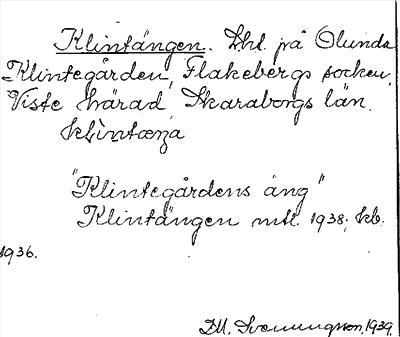 Klintängen. Lht. på Olunda
Klintegården, Flakebergs socken,
Viste härad Skaraborgs län.
"Klintegårdens äng"
Klintängen mtl. 1938; kb.
1936.
D.M. Svenningsson, 1939.